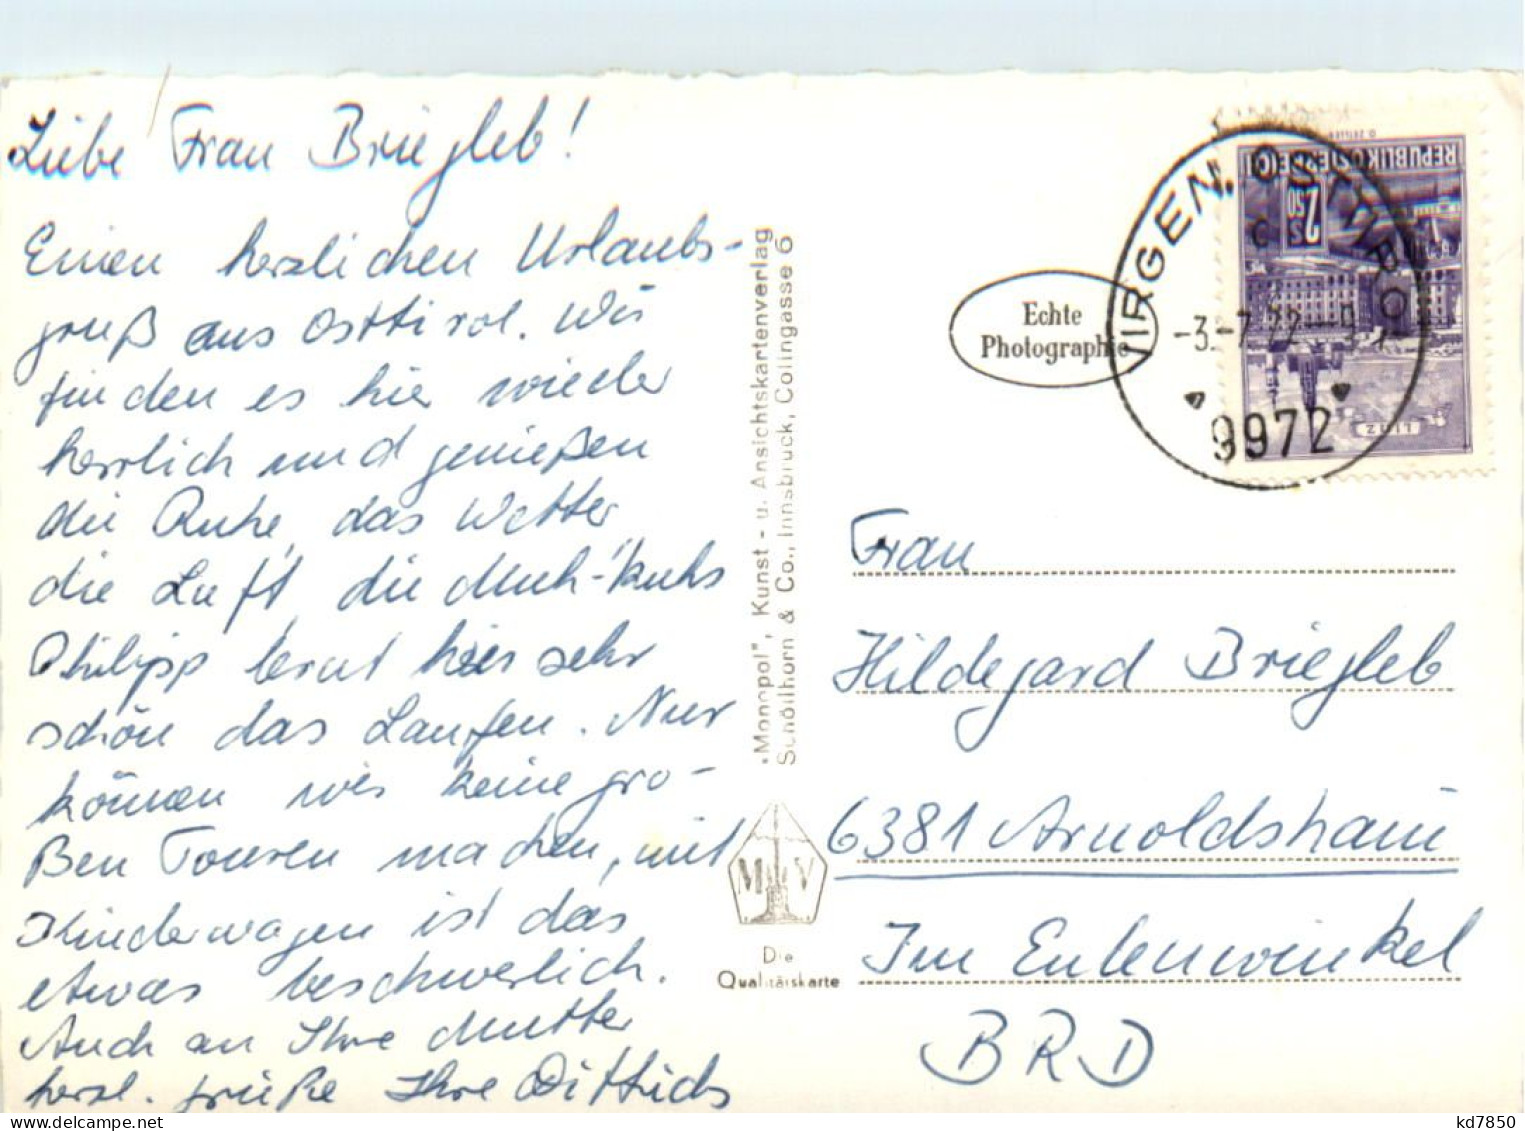 Liebe Frau Briegleb!
Einen herzlichen Urlaubs-
gruß aus Osttirol. Wir
finden es hier wieder
herrlich und genießen
die Ruhe, das Wetter,
die Luft, die "Muh-Kuhs"
Philipp lernt hier sehr
schön das Laufen. Nur
können wir keine gro-
ßen Touren machen, mit
Kinderwagen ist das
etwas beschwerlich.
Auch an Ihre Mutter
herzl. Grüße Ihre Dittrichs
"Monopol", Kunst- u. Ansichtskartenverlag
Schöllhorn & Co., Innsbruck, Colingasse 6
M V
Die
Qualitätskarte
Echte
Photographie
VIRGEN, OSTTIROL
-3.-7.72--9
9972
REPUBLIK ÖSTERREICH
2.50
S
LINZ
Frau
Hildegard Briegleb
6381 Arnoldshain
Im Eulenwinkel
BRD
kd7850